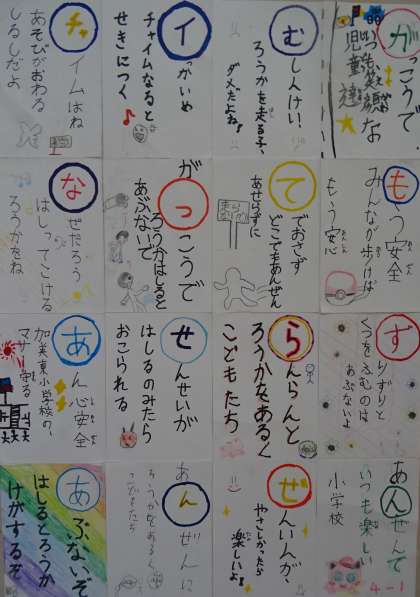 がっこうで
いつも笑顔な
児童達
むしんけい、
ろうかを走る子、
ダメだよね!
イっかいめ
チャイムなると
せきにつく
チャイムはね
あそびがおわる
しるしだよ
もう安全
みんなが歩けば
もう安心
てでおさず
どこでもあんぜん
あせらずに
がっこうで
ろうかはしると
あぶないで
なぜだろう
はしってこける
ろうかだね
ずりずりと
くつをふむのは
あぶないよ
らんらんと
ろうかをあるく
こどもたち
せんせいが
はしるのみたら
おこられる
あん心安全
加美東小学校の、
守る
あんぜんで
いつも楽しい
小学校
4-1
ぜんいんが、
やさしかったら
楽しいよ!
あんぜんに
ろうかをあるく
こどもたち
あぶないぞ
はしるとろうか
けがするぞ